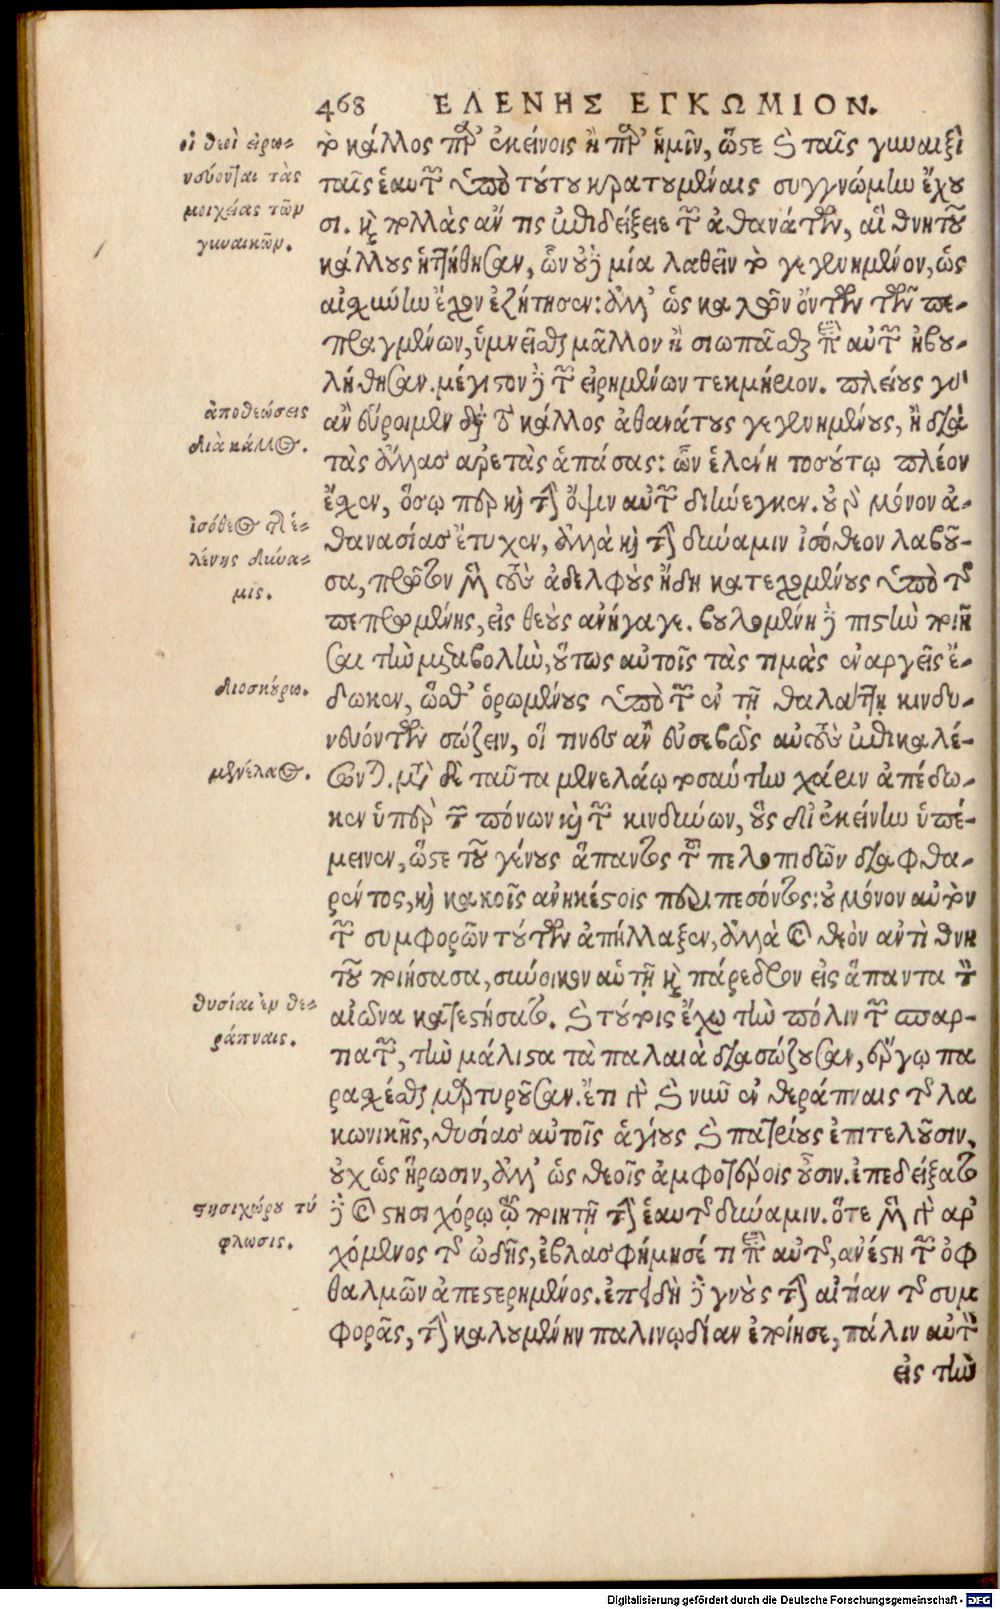 468 ΕΛΕΝΗΣ ΕΓΚΩΜΙΟΝ.
οἱ θεοὶ εἰρω-
νεύονται τὰς
μοιχείας τῶν
γυναικῶν.
τὸ κάλλος παρ' ἐκείνοις ἢ παρ' ἡμῖν, ὥστε καὶ ταῖς γυναιξὶ
ταῖς ἑαυτῶν ὑπὸ τούτου κρατουμέναις συγγνώμην ἔχου
σι. καὶ πολλὰς ἄν τις ἐπιδείξειε τῶν ἀθανάτων, αἳ θνητοῦ
κάλλους ἡττήθησαν, ὧν οὐδεμία λαθεῖν τὸ γεγενημένον, ὡς
αἰσχύνην ἔχον ἐζήτησεν: ἀλλ' ὡς καλῶν ὄντων τῶν πε-
πραγμένων, ὑμνεῖσθαι μᾶλλον ἢ σιωπᾶσθαι περὶ αὐτῶν ἠβου-
λήθησαν. μέγιστον δὲ τῶν εἰρημένων τεκμήριον. πλείους γὰρ
ἀποθεώσεις
διὰ κάλλος.
ἂν εὕροιμεν διὰ τὸ κάλλος ἀθανάτους γεγενημένους, ἢ διὰ
τὰς ἄλλας ἀρετὰς ἁπάσας: ὧν ἑλένη τοσούτῳ πλέον
ἔσχεν, ὅσῳ περ καὶ τὴν ὄψιν αὐτῶν διήνεγκεν. οὐ γὰρ μόνον ἀ-
ἰσόθεος τῆς ἑ-
λένης δύνα-
μις.
θανασίας ἔτυχεν, ἀλλὰ καὶ τὴν δύναμιν ἰσόθεον λαβοῦ-
σα, πρῶτον μὲν τοὺς ἀδελφοὺς ἤδη κατεχομένους ὑπὸ τῆς
πεπρωμένης, εἰς θεοὺς ἀνήγαγε. βουλομένη δὲ πιστὴν ποιῆ
σαι τὴν μεταβολὴν, οὕτως αὐτοῖς τὰς τιμὰς ἐναργεῖς ἔ-
διοσκούρω.
δωκεν, ὥσθ' ὁρωμένους ὑπὸ τῶν ἐν τῇ θαλάττῃ κινδυ-
νευόντων σώζειν, οἵ τινες ἂν εὐσεβῶς αὐτοὺς ἐπικαλέ-
μενέλαος.
σωνται. μετὰ δὲ ταῦτα μενελάῳ τοσαύτην χάριν ἀπέδω-
κεν ὑπὲρ τῶν πόνων καὶ τῶν κινδύνων, οὓς δι' ἐκείνην ὑπέ-
μεινεν, ὥστε τοῦ γένους ἅπαντος τοῦ πελοπιδῶν διαφθα-
ρέντος, καὶ κακοῖς ἀνηκέστοις περιπεσόντος: οὐ μόνον αὐτὸν
τῶν συμφορῶν τούτων ἀπήλλαξεν, ἀλλὰ καὶ θεὸν ἀντὶ θνη
τοῦ ποιήσασα, σύνοικον αὑτῇ καὶ πάρεδρον εἰς ἅπαντα τὸν
θυσίαι ἐν θε-
ράπναις.
αἰῶνα κατεστήσατο. καὶ τούτοις ἔχω τὴν πόλιν τῶν σπαρ-
τιατῶν, τὴν μάλιστα τὰ παλαιὰ διασώζουσαν, ἔργῳ πα
ρασχέσθαι μαρτυροῦσαν. ἔτι γὰρ καὶ νῦν ἐν θεράπναις τῆς λα
κωνικῆς, θυσίας αὐτοῖς ἁγίους καὶ πατρίους ἐπιτελοῦσιν,
οὐχ ὡς ἥρωσιν, ἀλλ' ὡς θεοῖς ἀμφοτέροις οὖσιν. ἐπεδείξατο
στησιχόρου τύ
φλωσις.
δὲ καὶ στησιχόρῳ τῷ ποιητῇ τὴν ἑαυτῆς δύναμιν. ὅτε μὲν γὰρ ἀρ
χόμενος τῆς ᾠδῆς, ἐβλασφήμησέ τι περὶ αὐτῆς, ἀνέστη τῶν ὀφ
θαλμῶν ἀπεστερημένος. ἐπειδὴ δὲ γνοὺς τὴν αἰτίαν τῆς συμ
φορᾶς, τὴν καλουμένην παλινῳδίαν ἐποίησε, πάλιν αὐτὸν
εἰς τὴν
Digitalisierung gefördert durch die Deutsche Forschungsgemeinschaft - DFG